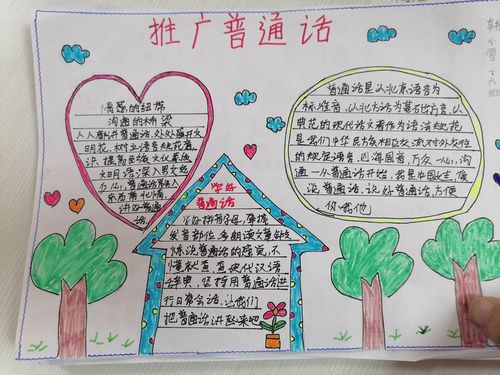 推广普通话
情感的纽带
沟通的桥梁
人人都讲普通话,处处盛开文
明花,树立语言规范意
识,提高民族文化素质
文明
普通话
东西南北情
讲好普通
话
学好
普通话
学好拼音字母,掌握
发音部位,多朗读文章多收
练说普通话的感觉,不
懂就查,查现代汉语
字典,坚持用普通话进
行日常会话,让我们
把普通话讲起来吧
普通话是以北京语音为
标准音,以北方话为基础方言,以
典范的现代
文著作为语法规范
是我们中华民族相互交流对外友往
的规范语言,四海同音,万众一心,沟
通从普通话开始,我是中国
说普通话,说好普通话,方便
你我他
小雪